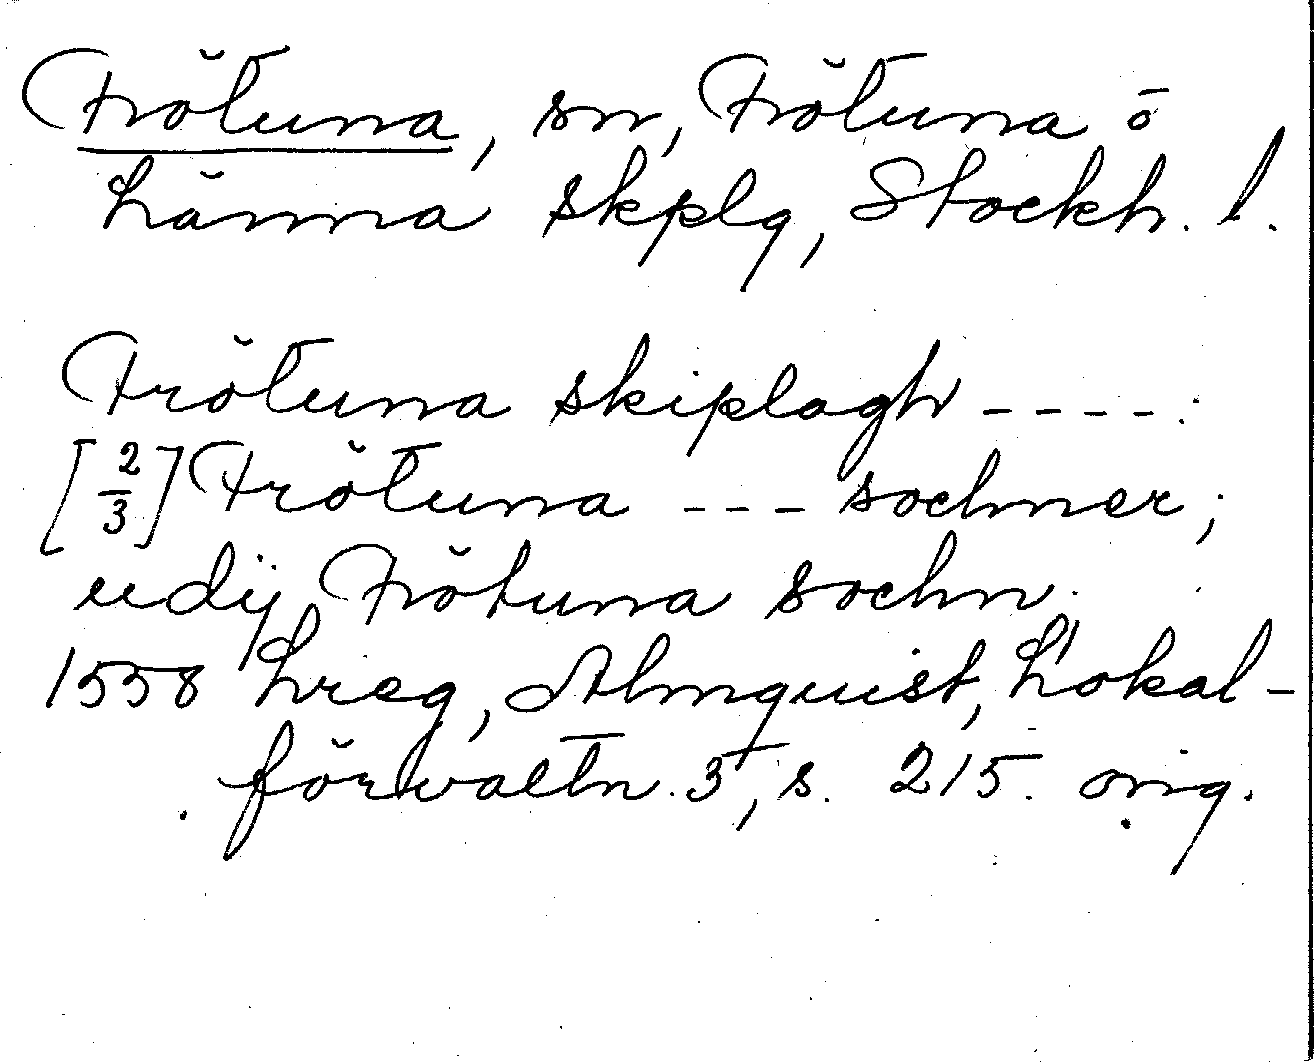 Frötuna, sn, Frötuna o
Länna skplg, Stockh. l.
Frötuna skiplagh ----:
[2/3] Frötuna --- sochner;
udij Frötuna sochn.
1558 Lreg, Almquist, Lokal-
förvaltn. 3, s. 215. orig.